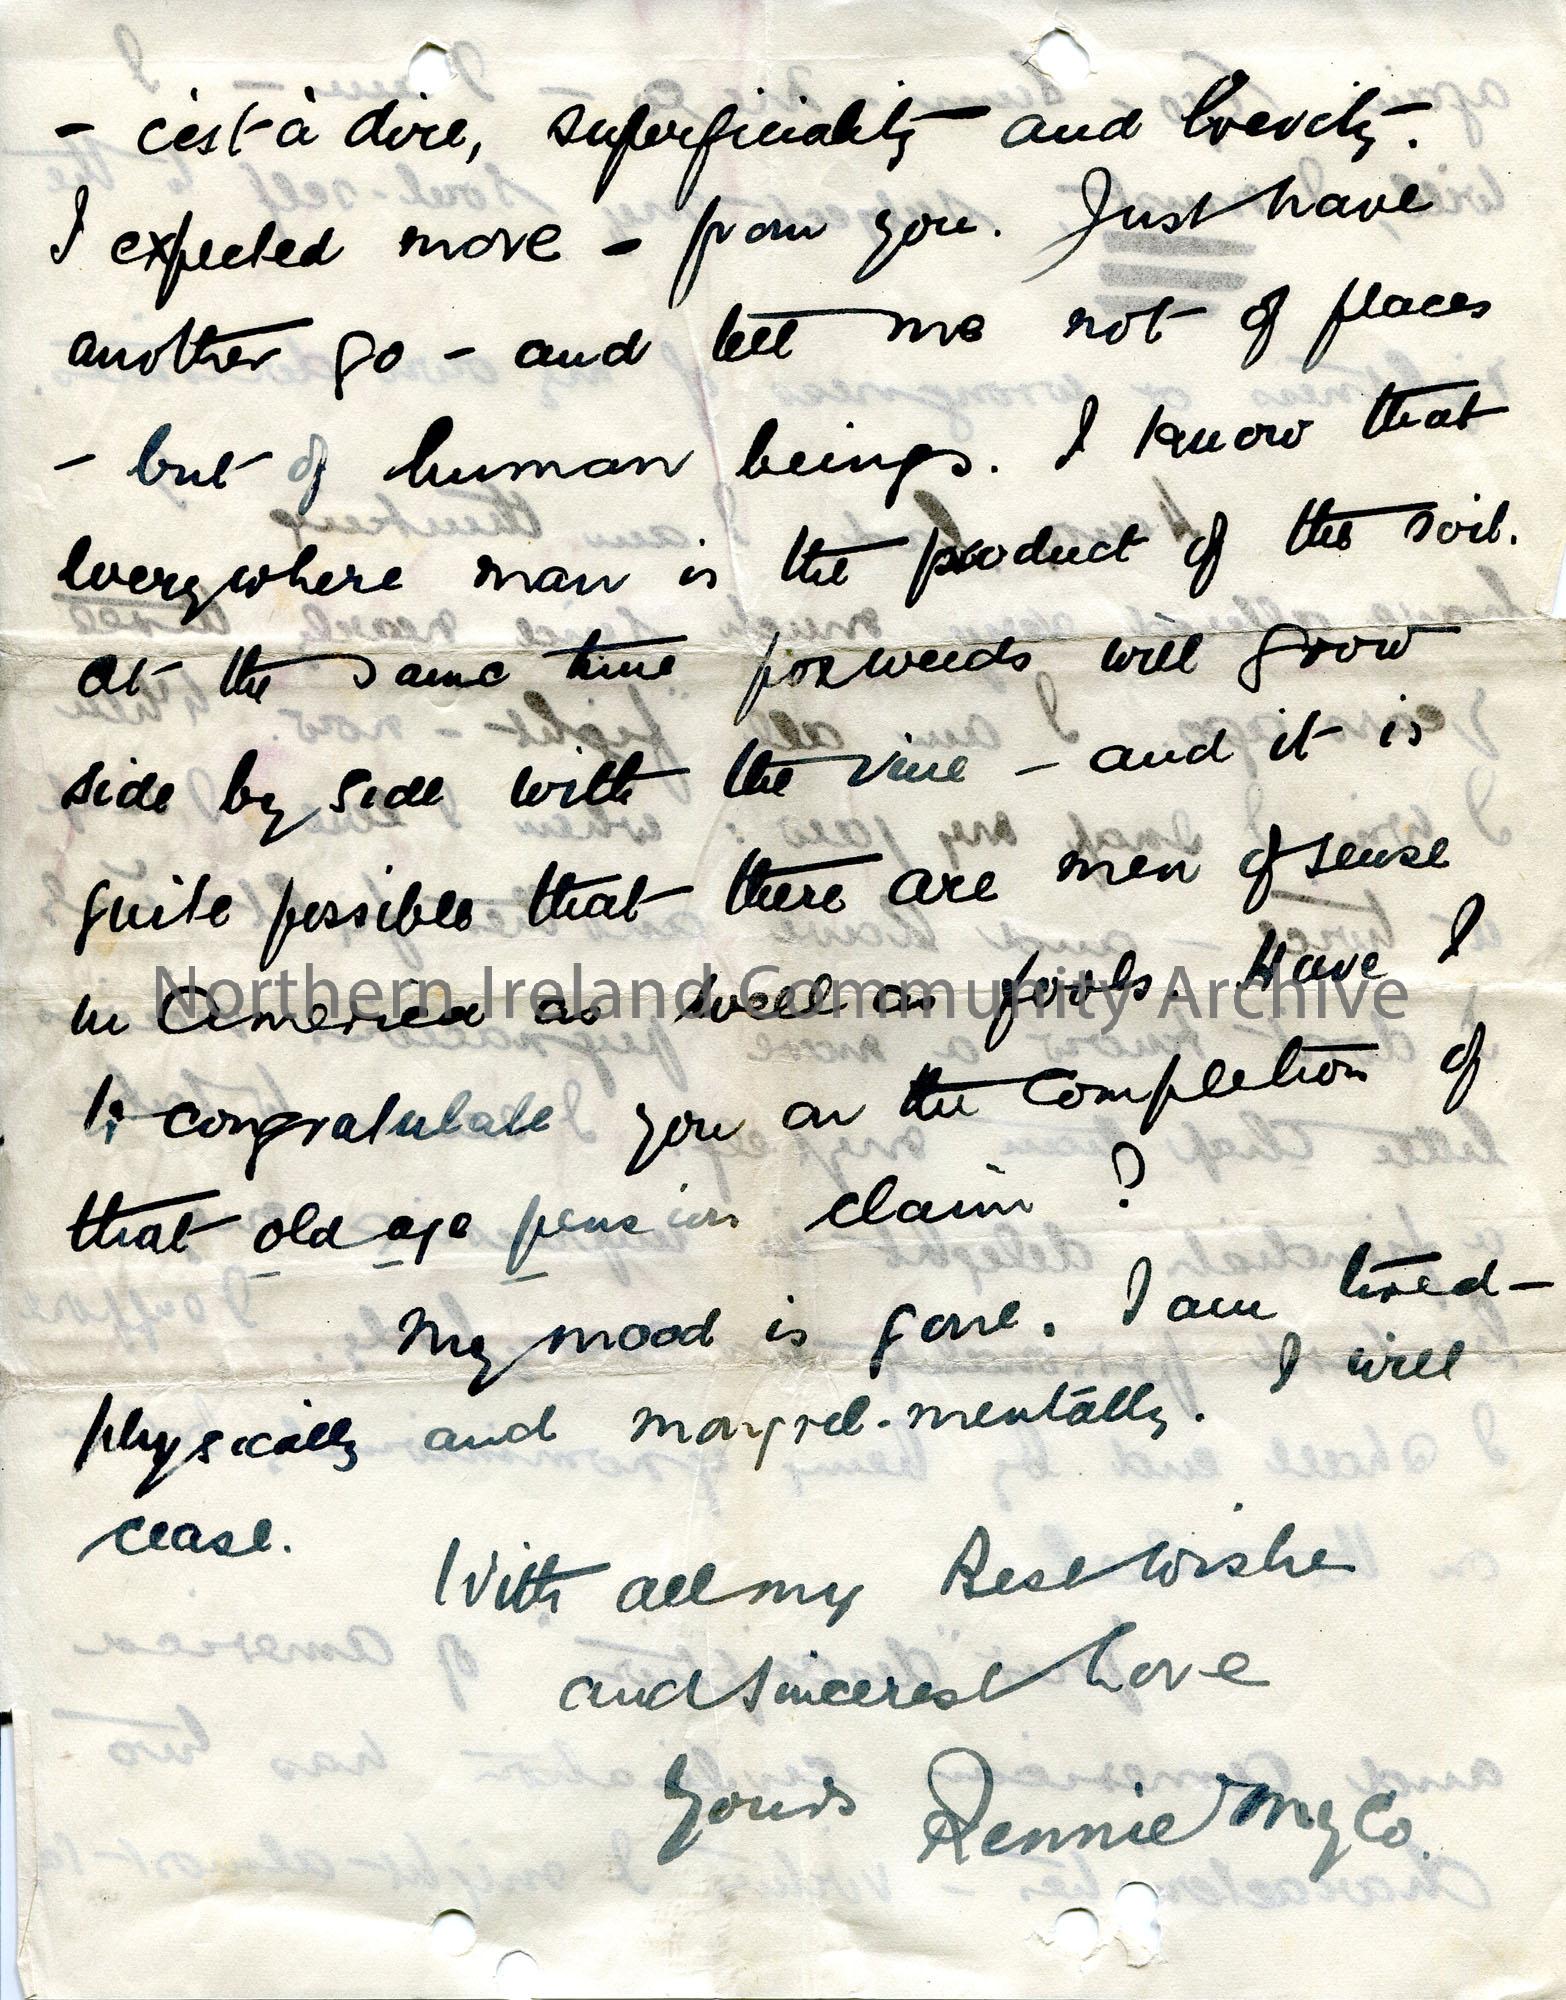 - c'est à dire, superficiality and brevity.
I expected more - from you. Just have
another go - and tell me not of places
- but of human beings. I know that
everywhere man is the product of the soil.
At the same time poxweeds will grow
side by side with the vine - and it is
quite possible that there are men of sense
in America as well as fools. Have I
Northern Ireland Community Archive
to congratulate you on the completion of
that old age pension claim?
My mood is gone. I am tired -
physically and mongrel-mentally. I will
cease.
With all my Best wishes
and sincerest Love
Yours Rennie McCo.